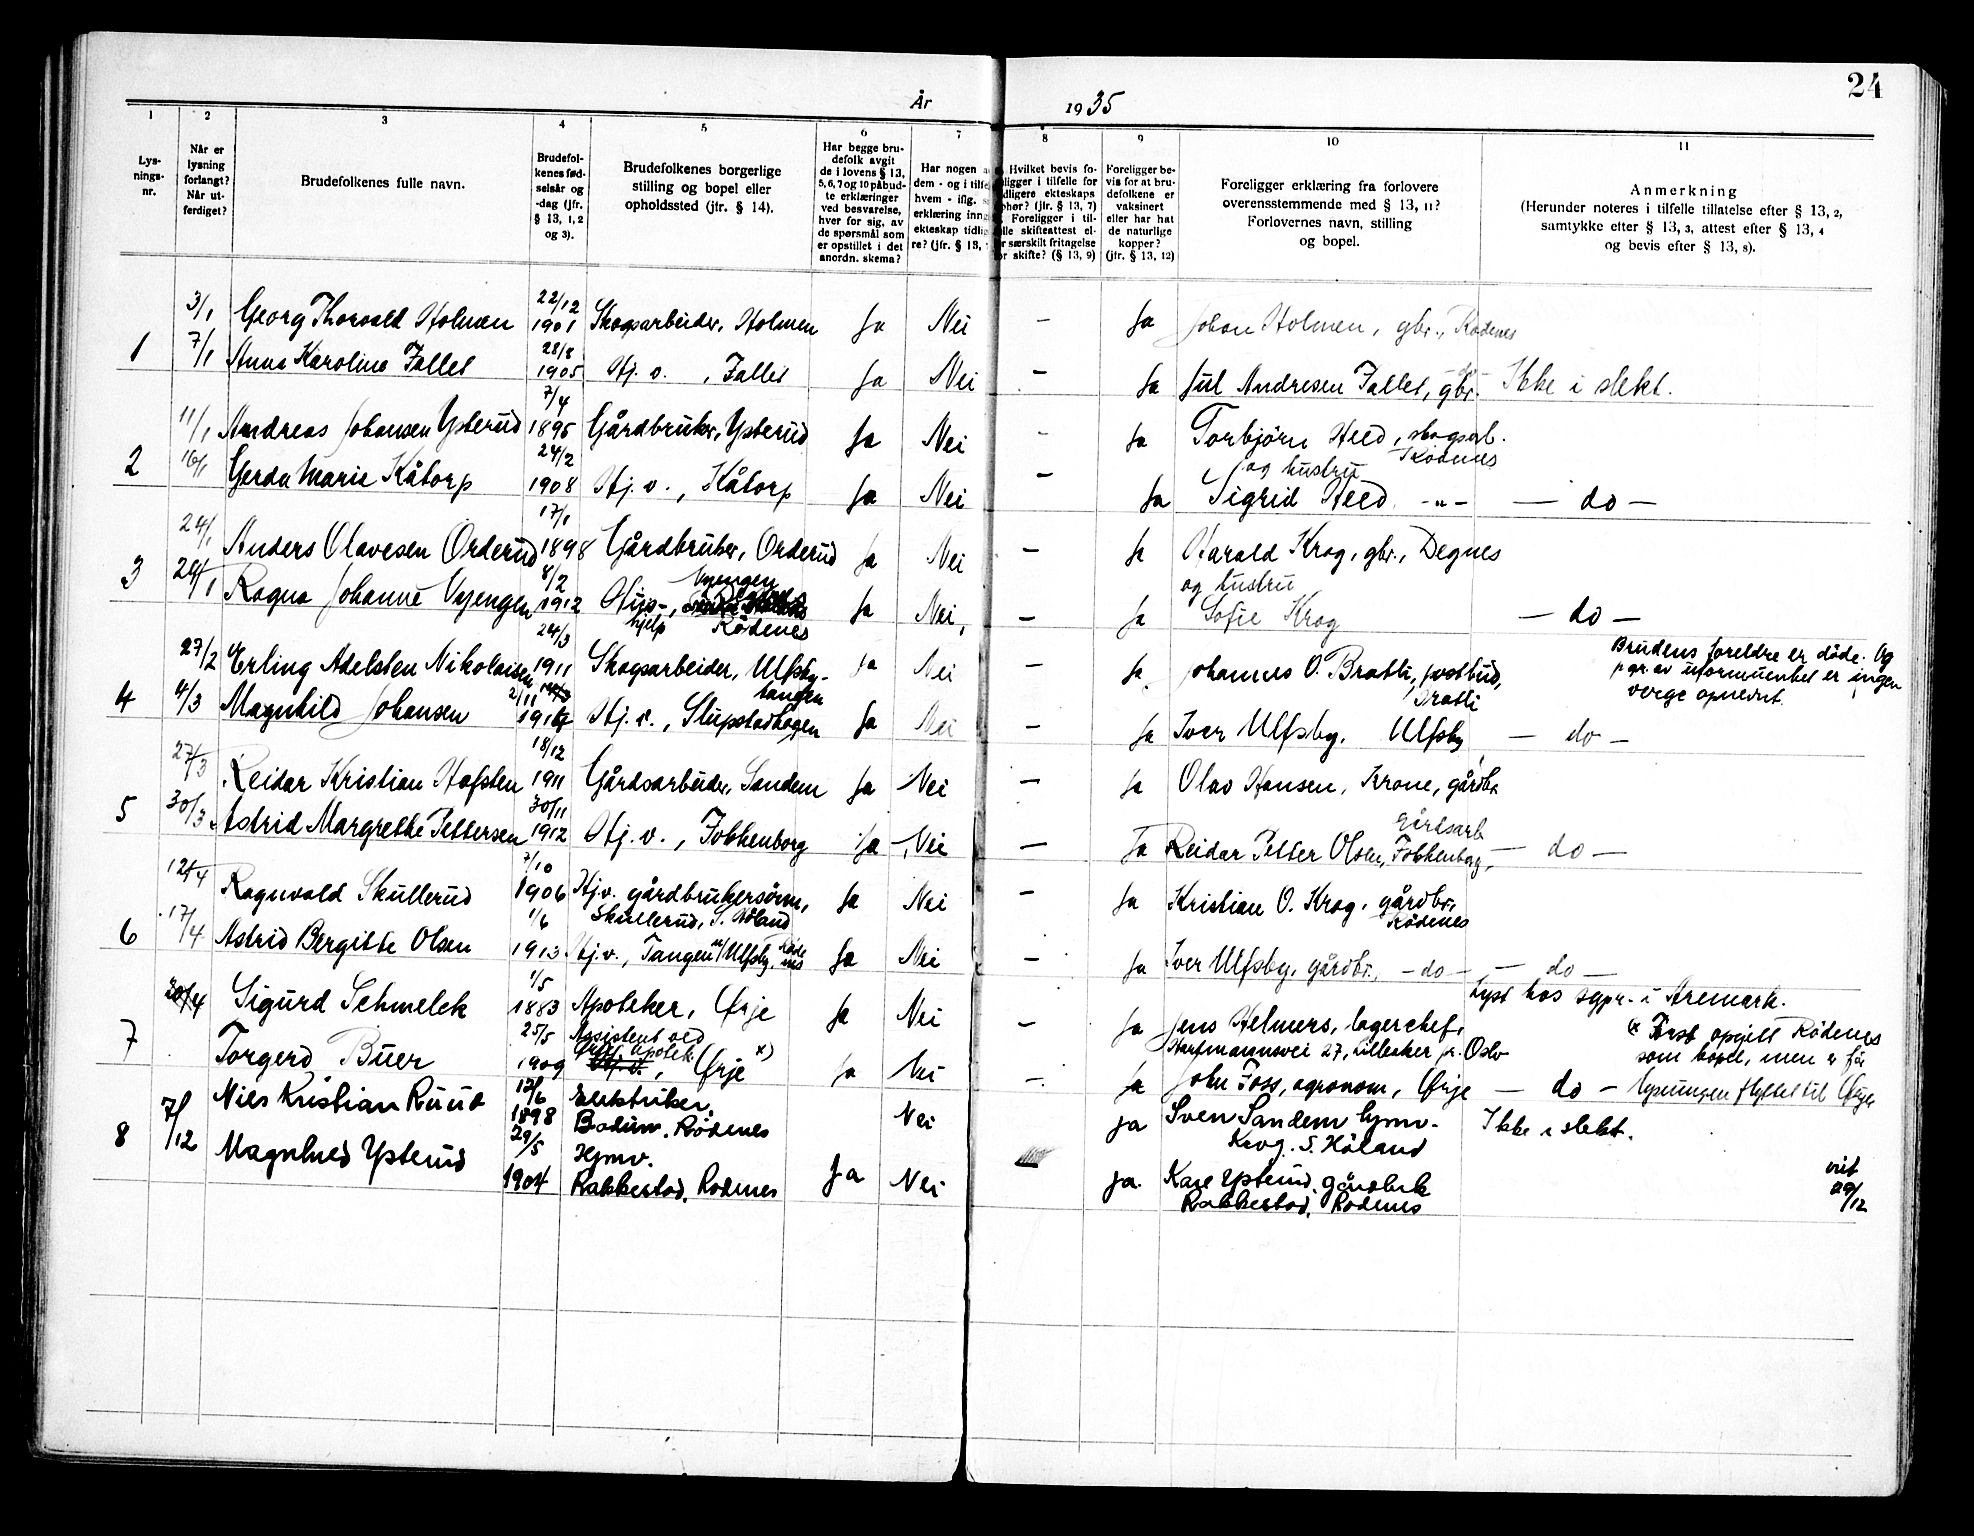 24
År 1935
1 2 3 4 5 6 7 8 9 10 11
Lys-
nings-
nr.
Når er
lysning
forlangt?
Når ut-
ferdiget?
Brudefolkenes fulle navn.
Brudefol-
kenes fød-
selsår og
-dag (jfr.
§ 13, 1, 2
og 3).
Brudefolkenes borgerlige
stilling og bopel eller
opholdssted (jfr. § 14).
Har begge bru-
defolk avgit
de i lovens § 13,
5, 6, 7 og 10 påbud-
te erklæringer
ved besvarelse,
hver for sig, av
de spørsmål som
er opstillet i det
anordn. skema?
Har nogen a
dem - og i tilfe
hvem - iflg.
erklæring inng
ekteskap tidli
re? (jfr. § 13,
Hvilket bevis fo-
ligger i tilfelle for
dligere ekteskaps
phør? (jfr. § 13, 7)
Foreligger i til-
lle skifteattest el-
r særskilt fritagelse
or skifte? (§ 13, 9)
Foreligger be-
vis for at bru-
defolkene er
vaksinert
eller har hat
de naturlige
kopper?
(jfr. § 13, 12)
Foreligger erklæring fra forlovere
overensstemmende med § 13, 11?
Forlovernes navn, stilling
og bopel.
Anmerkning
(Herunder noteres i tilfelle tillatelse efter § 13, 2,
samtykke efter § 13, 3, attest efter § 13, 4
og bevis efter § 13, 8).
3/1 Georg Thorvald Holmen 22/12 1901 Skogsarbeider, Holmen Ja Nei – Ja Johan Holmen, gbr., Rødenes
1 7/1 Anna Karoline Fallet 28/8 1905 Hj. v. , Fallet Ja Nei – Ja Jul Andresen Fallet, gbr. -do- Ikke i slekt.
11/1 Andreas Johansen Ysterud 7/4 1895 Gårdbruker, Ysterud Ja Nei – Ja Torbjörn Heed, skogsarb.
Rödenes
og hustru
2 16/1 Gerda Marie Kåtorp 24/2 1908 Hj. v. , Kåtorp Ja Nei – Ja Sigrid Heed -"- – do –
24/1 Anders Olavesen Orderud 17/1 1898 Gårdbruker, Orderud Ja Nei – Ja Harald Krog, gbr., Degnes
og hustru
3 29/1 Ragna Johanne Vyengen 8/2 1912 Hus-hjelp, Vyengen
Rödenes Ja Nei, – Ja Sofie Krog – do –
27/2 Erling Adelsten Nikolaisen 24/3 1911 Skogsarbeider, Ulfsby-
tangen Ja Nei – Ja Johannes O. Bratli, postbud,
Bratli
Brudens foreldre er döde. Og
p.gr.av uformuenhet er ingen
verge opnevnt.
4 4/3 Magnhild Johansen 2/11 Hj. v. , Slupstadhagen Ja Nei – Ja Iver Ulfsby, Ulfsby – do –
27/3 Reidar Kristian Hofsten 18/12 1911 Gårdsarbeider, Sandem Ja Nei – Ja Olav Hansen, Krone, gårdbr.
5 30/3 Astrid Margrethe Pettersen 30/11 1912 Hj. v. , Fokkenborg Ja Nei – Ja Reidar Petter Olsen, gårdsarb. Fokkenborg, – do –
12/4 Ragnvald Skullerud 7/10 1906 Hj.v. gårdbrukersönn,
Skullerud, S. Höland Ja Nei – Ja Kristian O. Krog, gårdbr.,
Rödenes
6 17/4 Astrid Bergitte Olsen 1/6 1913 Hj.v., Tangen u/ Ulfsby, Rödenes Ja Nei – Ja Iver Ulfsby, gårdbr., – do – – do –
30/4 Sigurd Schmelck 1/5 1883 Apoteker, Ørje Ja Nei – Ja Jens Helmers, lagerchef,
Harfmannsvei 27, Lilleaker pr. Oslo
Lyst hos sgpr. i Aremark.
7 Torgerd Buer 25/5 1909 Assistent ved
Ørje apotek, Ørje x) Ja Nei – Ja John Foss, agronom, Ørje – do –
x Först opgitt Rödenes
som bopel, men er för
lysningen flyttet til Ørje
Niels Kristian Ruud 17/6 1898 Elektriker,
Bodum. Rödenes Nei ja Sven Sandem hjmv.
Krog. S. Höland Ikke i slekt.
8 7/12 Magnhild Ysterud 29/5 1904 Hjmv.
Rakkestad, Rödenes Ja Nei ja. Kåre Ysterud, gårdbruk
Rakkestad, Rödenes
29/12